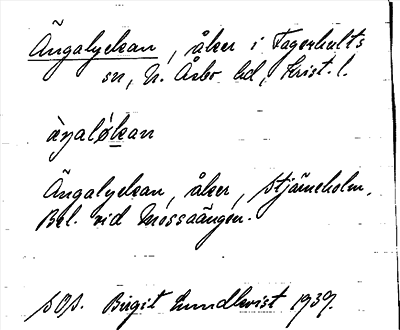 Ängalyckan, åker i Fagerhults
sn, N. Åsbo hd, Krist. l.
àŋalókan
Ängalyckan, åker, Stjärneholm.
Bel. vid Mossaängen.
SOA. Birgit Lundkvist 1937.